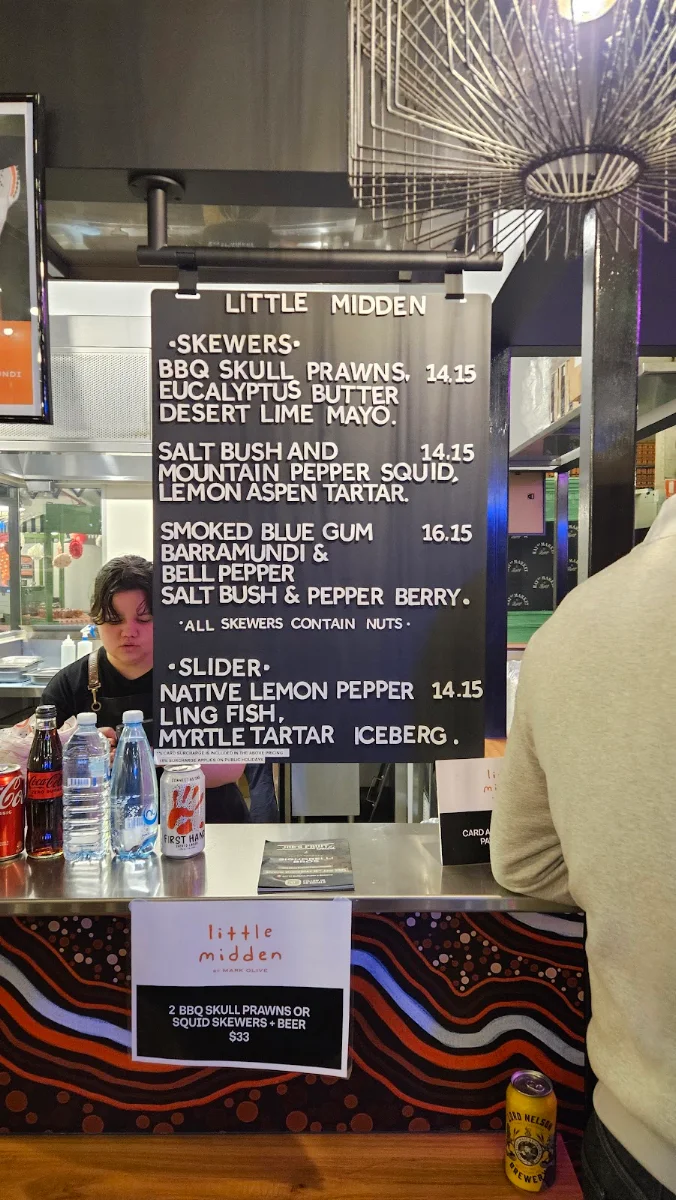 LITTLE MIDDEN
•SKEWERS•
BBQ SKULL PRAWNS, 14.15
EUCALYPTUS BUTTER
DESERT LIME MAYO.
SALT BUSH AND 14.15
MOUNTAIN PEPPER SQUID,
LEMON ASPEN TARTAR.
SMOKED BLUE GUM 16.15
BARRAMUNDI &
BELL PEPPER
SALT BUSH & PEPPER BERRY.
•ALL SKEWERS CONTAIN NUTS•
•SLIDER•
NATIVE LEMON PEPPER 14.15
LING FISH,
MYRTLE TARTAR ICEBERG.
CARD SURCHARGE IS INCLUDED IN THE ABOVE PRICING
SURCHARGE APPLIES ON PUBLIC HOLIDAYS
Coca-Cola
FIRST HAND
li
mi
CARD A
PA
little
midden
BY MARK OLIVE
2 BBQ SKULL PRAWNS OR
SQUID SKEWERS + BEER
$33
NELSON
BREWER